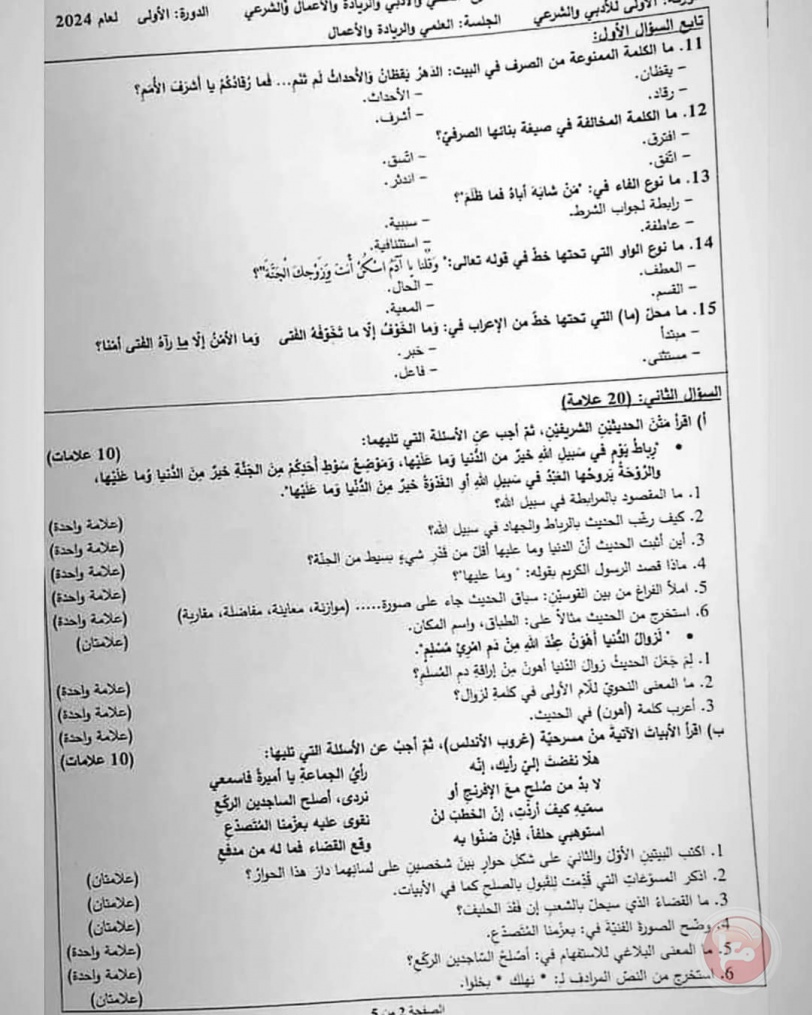 الأولى للأدبي والشرعي الجلسة: العلمي والريادة والأعمال والأدبي والريادة والأعمال والشرعي الدورة: الأولى لعام 2024
تابع السؤال الأول:
11. ما الكلمة الممنوعة من الصرف في البيت: الدهرُ يَقظانُ وَالأحداثُ لَم تَنَم... فَما رُقادُكُم يا أَشرَفَ الأُمَمِ؟
- يقظان. - الأحداث.
- رقاد. - أشرف.
12. ما الكلمة المخالفة في صيغة بنائها الصرفيّ؟
- افترق. - اتّسق.
- اتّفق. - اندثر.
13. ما نوع الفاء في: "مَنْ شابَهَ أباهُ فما ظَلَمَ"؟
- رابطة لجواب الشرط. - سببية.
- عاطفة. - استئنافية.
14. ما نوع الواو التي تحتها خطّ في قوله تعالى: "وَقُلنَا يا آدَمُ اسْكُنْ أَنتَ وَزَوْجُكَ الْجَنَّةَ"؟
- العطف. - الحال.
- القسم. - المعية.
15. ما محلّ (ما) التي تحتها خطّ من الإعراب في: وَما الخَوْفُ إلّا ما تَخَوَّفَهُ الفَتى وَما الأمْنُ إلّا ما رآهُ الفَتى أمْنا؟
- مبتدأ - خبر.
- مستثنى. - فاعل.
السؤال الثاني: (20 علامة)
أ) اقرأ مَتْنَ الحديثيْنِ الشريفيْنِ، ثمّ أجب عنِ الأسئلة التي تليهما: (10 علامات)
• "رِباطُ يَوْمٍ في سَبيلِ اللهِ خيرٌ من الدُّنيا وَما عَلَيْها، وَمَوْضِعُ سَوْطِ أَحَدِكُمْ مِنَ الجَنَّةِ خَيرٌ مِنَ الدُّنيا وَما عَلَيْها،
والرَّوْحَةُ يَروحُها العَبْدُ في سَبيلِ اللهِ أوِ الغَدْوَةُ خَيرٌ مِنَ الدُّنْيا وَمَا عَلَيْها".
1. ما المقصود بالمرابطة في سبيل الله؟ (علامة واحدة)
2. كيف رغّب الحديث بالرباط والجهاد في سبيل الله؟ (علامة واحدة)
3. أين أثبت الحديث أنّ الدنيا وما عليها أقلّ من قدْرِ شيءٍ بسيط من الجنّة؟ (علامة واحدة)
4. ماذا قصد الرسول الكريم بقوله: "وما عليها"؟ (علامة واحدة)
5. املأ الفراغ من بين القوسيْن: سياق الحديث جاء على صورة..... (موازنة، معاينة، مفاضلة، مقاربة) (علامة واحدة)
6. استخرج من الحديث مثالاً على: الطباق، واسم المكان. (علامتان)
• "لَزوالُ الدُّنيا أهْوَنُ عِنْدَ اللهِ مِنْ دَمِ امْرِئٍ مُسْلِمٍ".
1. لِمَ جَعَلَ الحديثُ زوالَ الدّنيا أهونَ مِنْ إراقةِ دم المُسلم؟ (علامة واحدة)
2. ما المعنى النحويّ للّام الأولى في كلمة لزوال؟ (علامة واحدة)
3. أعرب كلمة (أهون) في الحديث. (علامة واحدة)
ب) اقرأ الأبياتَ الآتيةَ منْ مسرحيّة (غروب الأندلس)، ثمّ أجبْ عن الأسئلة التي تليها: (10 علامات)
هلّا نفضتَ إليَّ رأيك، إنّه رأيُ الجماعةِ يا أميرةُ فاسمعي
لا بدَّ من صُلحٍ معَ الإفرنجِ أو نردى، أصلح الساجدين الركّعِ
سمّيهِ كيفَ أردْتِ، إنّ الخطبَ لنْ نقوى عليه بعزْمنا المُتصدّعِ
استوهبي حلفاً، فإن ضنّوا به وقع القضاء فما له من مدفعِ
1. اكتب البيتينِ الأوّل والثّاني على شكلِ حوارٍ بينَ شخصينِ على لسانِهما دارَ هذا الحوارُ؟ (علامتان)
2. اذكر المسوّغاتِ التي قُدِّمت للقَبولِ بالصلح كما في الأبيات. (علامتان)
3. ما القضاءُ الذي سيحلّ بالشعبِ إن فقدَ الحليفَ؟ (علامتان)
4. وضّح الصورة الفنيّة في: بعزْمنا المُتصدّعِ. (علامة واحدة)
5. ما المعنى البلاغي للاستفهام في: أصُلحَ السّاجدين الركّعِ؟ (علامة واحدة)
6. استخرج من النصّ المرادف لـ: * نهلك * بخلوا. (علامتان)
الصفحة 2 من 5